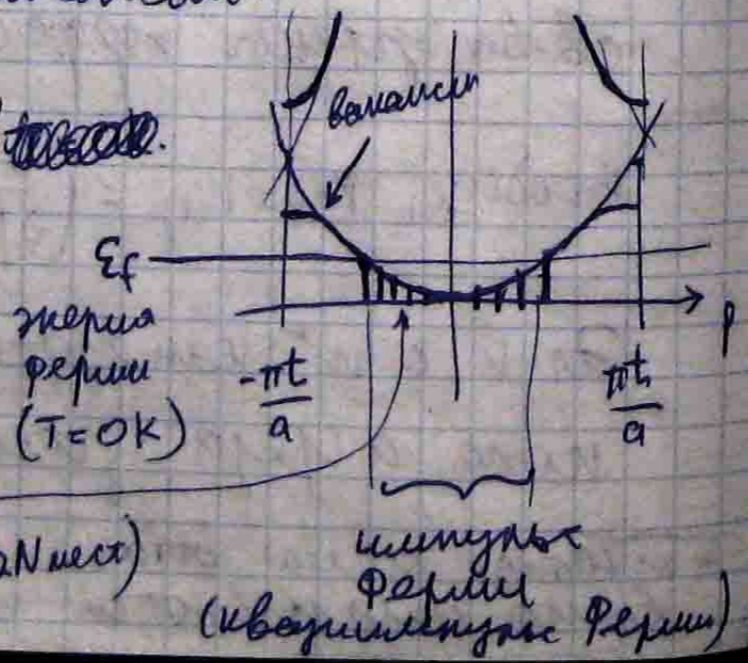 вакансии
εf
энергия
ферми
(T=0K)
-πħ/a
πħ/a
p
2N мест)
импульс
Ферми
(квазиимпульс Ферми)